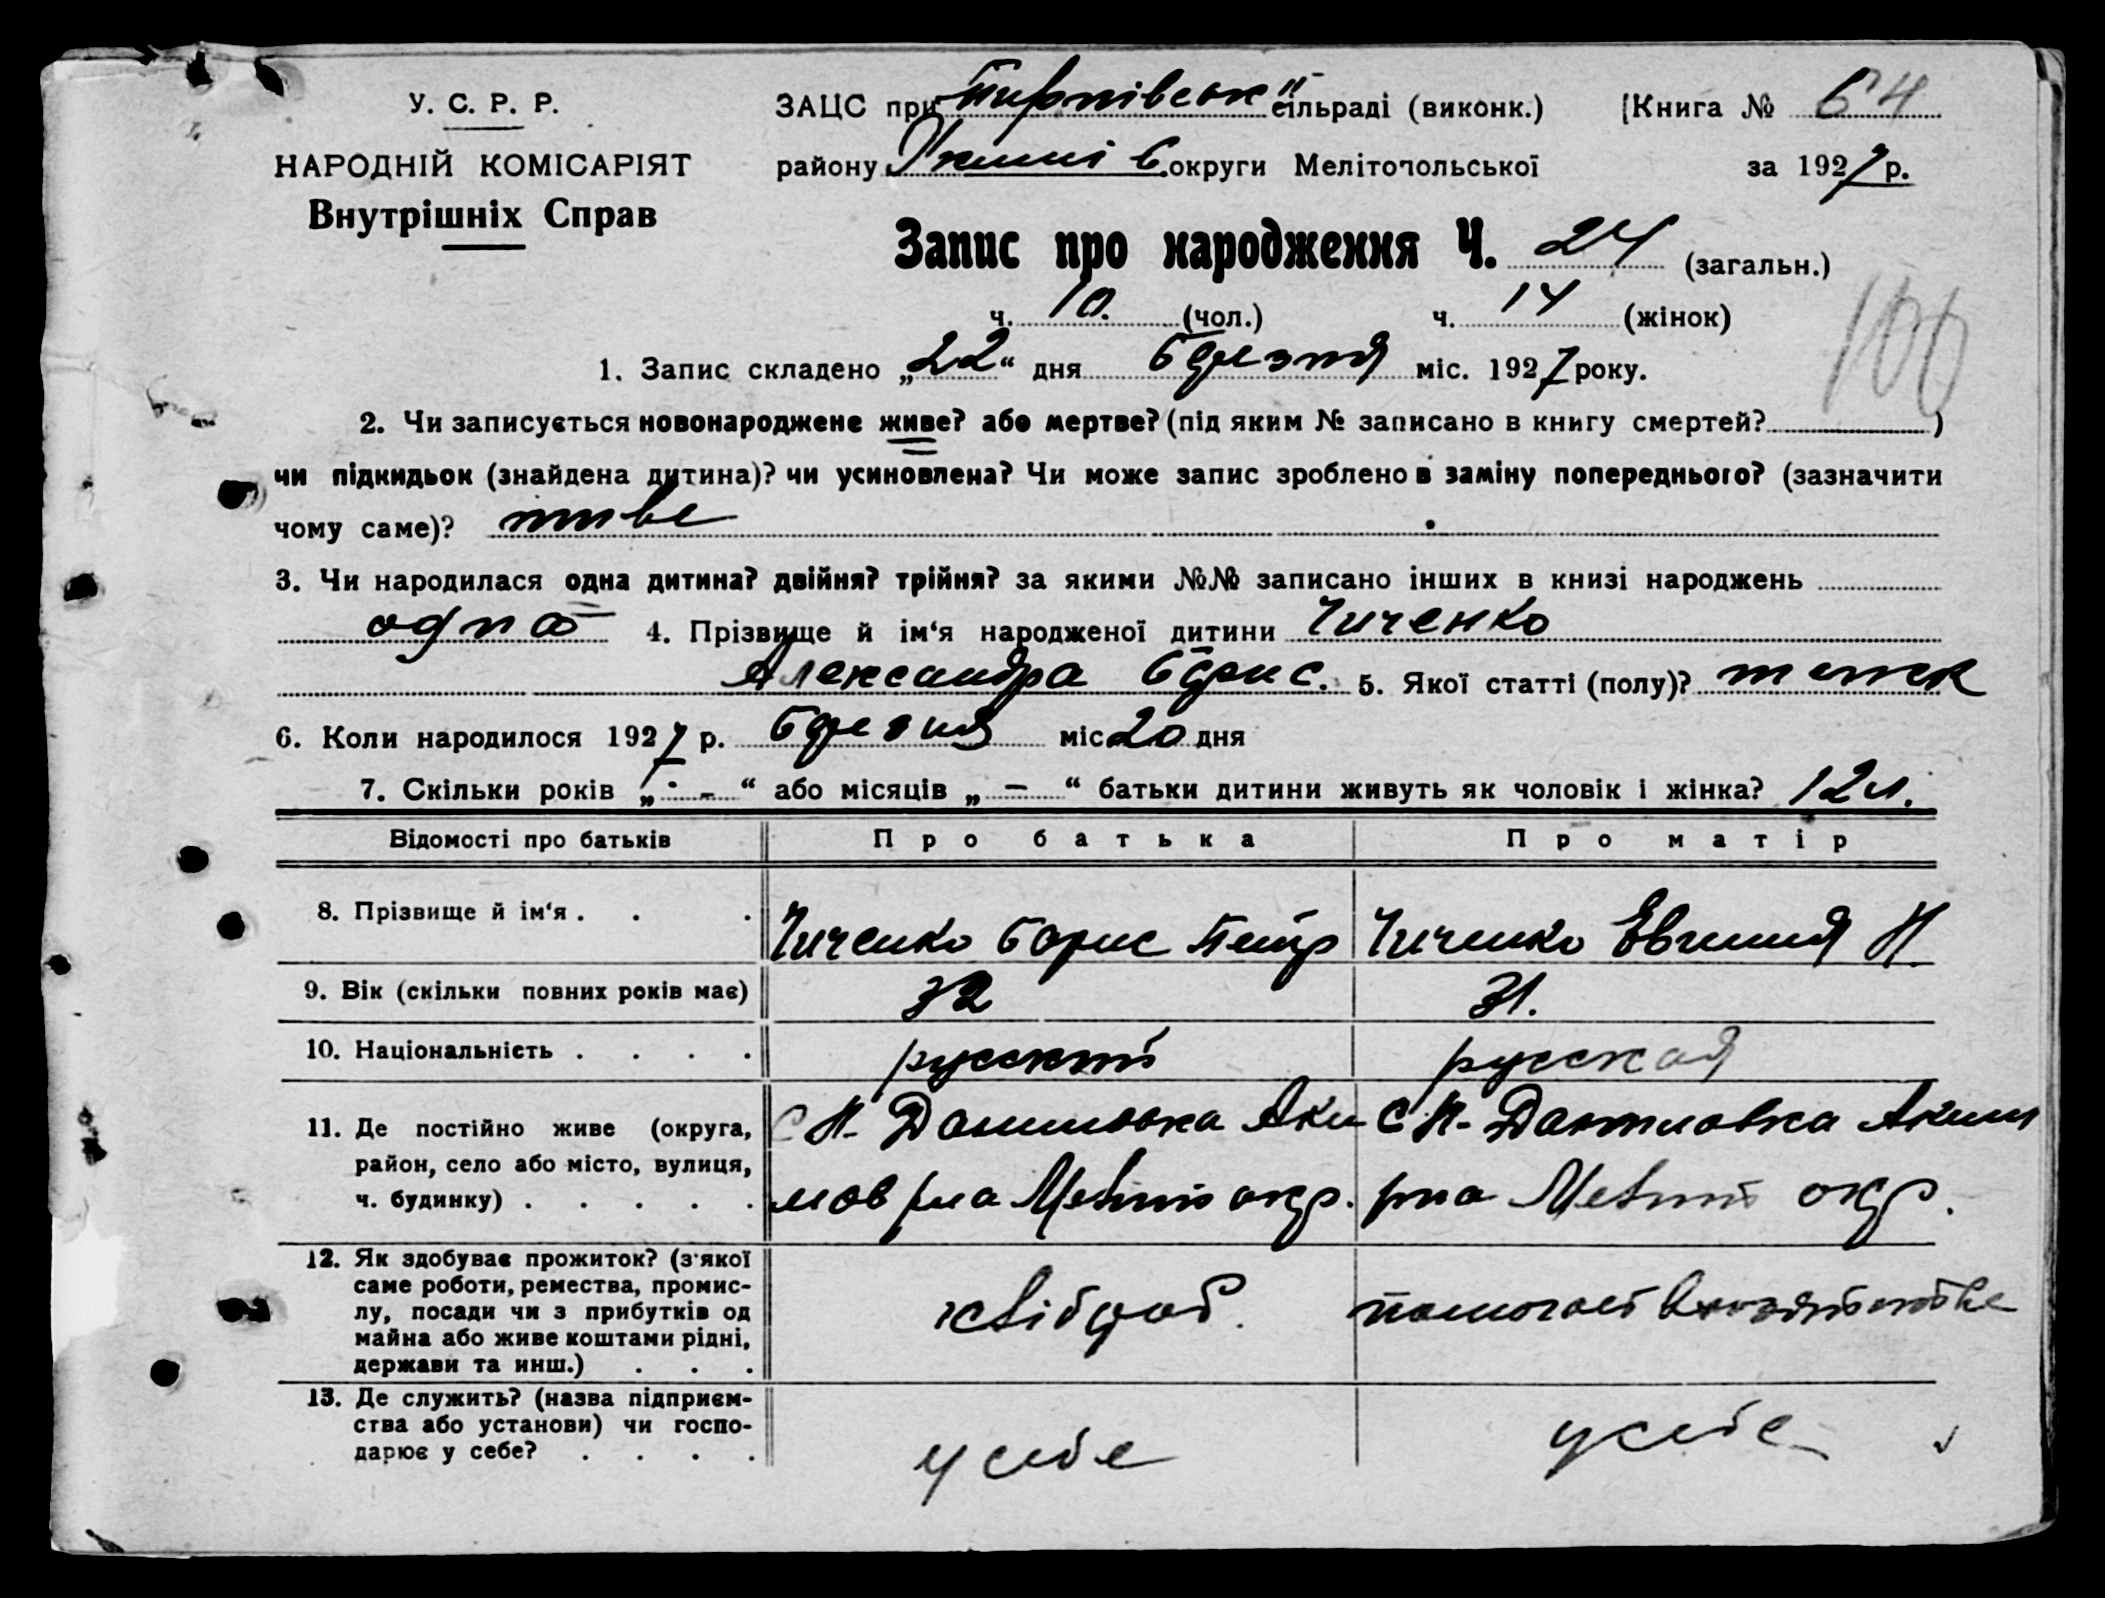 У. С. Р. Р.
НАРОДНІЙ КОМІСАРІЯТ
Внутрішніх Справ
ЗАЦС при сільраді (виконк.) [Книга № 64
району округи Мелітопольської за 1927 р.
Запис про народження Ч. 24 (загальн.)
ч. 10. (чол.) ч. 14 (жінок)
100
1. Запис складено „22“ дня березня міс. 1927 року.
2. Чи записується новонароджене живе? або мертве? (під яким № записано в книгу смертей? )
чи підкидьок (знайдена дитина)? чи усиновлена? Чи може запис зроблено в заміну попереднього? (зазначити
чому саме)? живе
3. Чи народилася одна дитина? двійня? трійня? за якими №№ записано інших в книзі народжень
одна 4. Прізвище й ім‘я народженої дитини Чиченко
Александра Борис. 5. Якої статті (полу)? женск
6. Коли народилося 1927 р. березня міс 20 дня
7. Скільки років „ - “ або місяців „ — “ батьки дитини живуть як чоловік і жінка? 12 л.
Відомості про батьків Про батька Про матір
8. Прізвище й ім‘я . . . Чиченко Борис Петр Чиченко Евгения Н
9. Вік (скільки повних років має) 32 31.
10. Національність . . . . русский русская
11. Де постійно живе (округа, район, село або місто, вулиця, ч. будинку) . . . . .
с Н- Даниловка Аки
мов рна Мелит окр.
с Н- Даниловка Аким
рна Мелит окр.
12. Як здобуває прожиток? (з'якої
саме роботи, ремества, промис-
лу, посади чи з прибутків од
майна або живе коштами рідні,
держави та инш.) . . .
хлібороб.
помогает в хозяйстве
13. Де служить? (назва підприєм-
ства або установи) чи госпо-
дарює у себе? . . . .
у себе
у себе